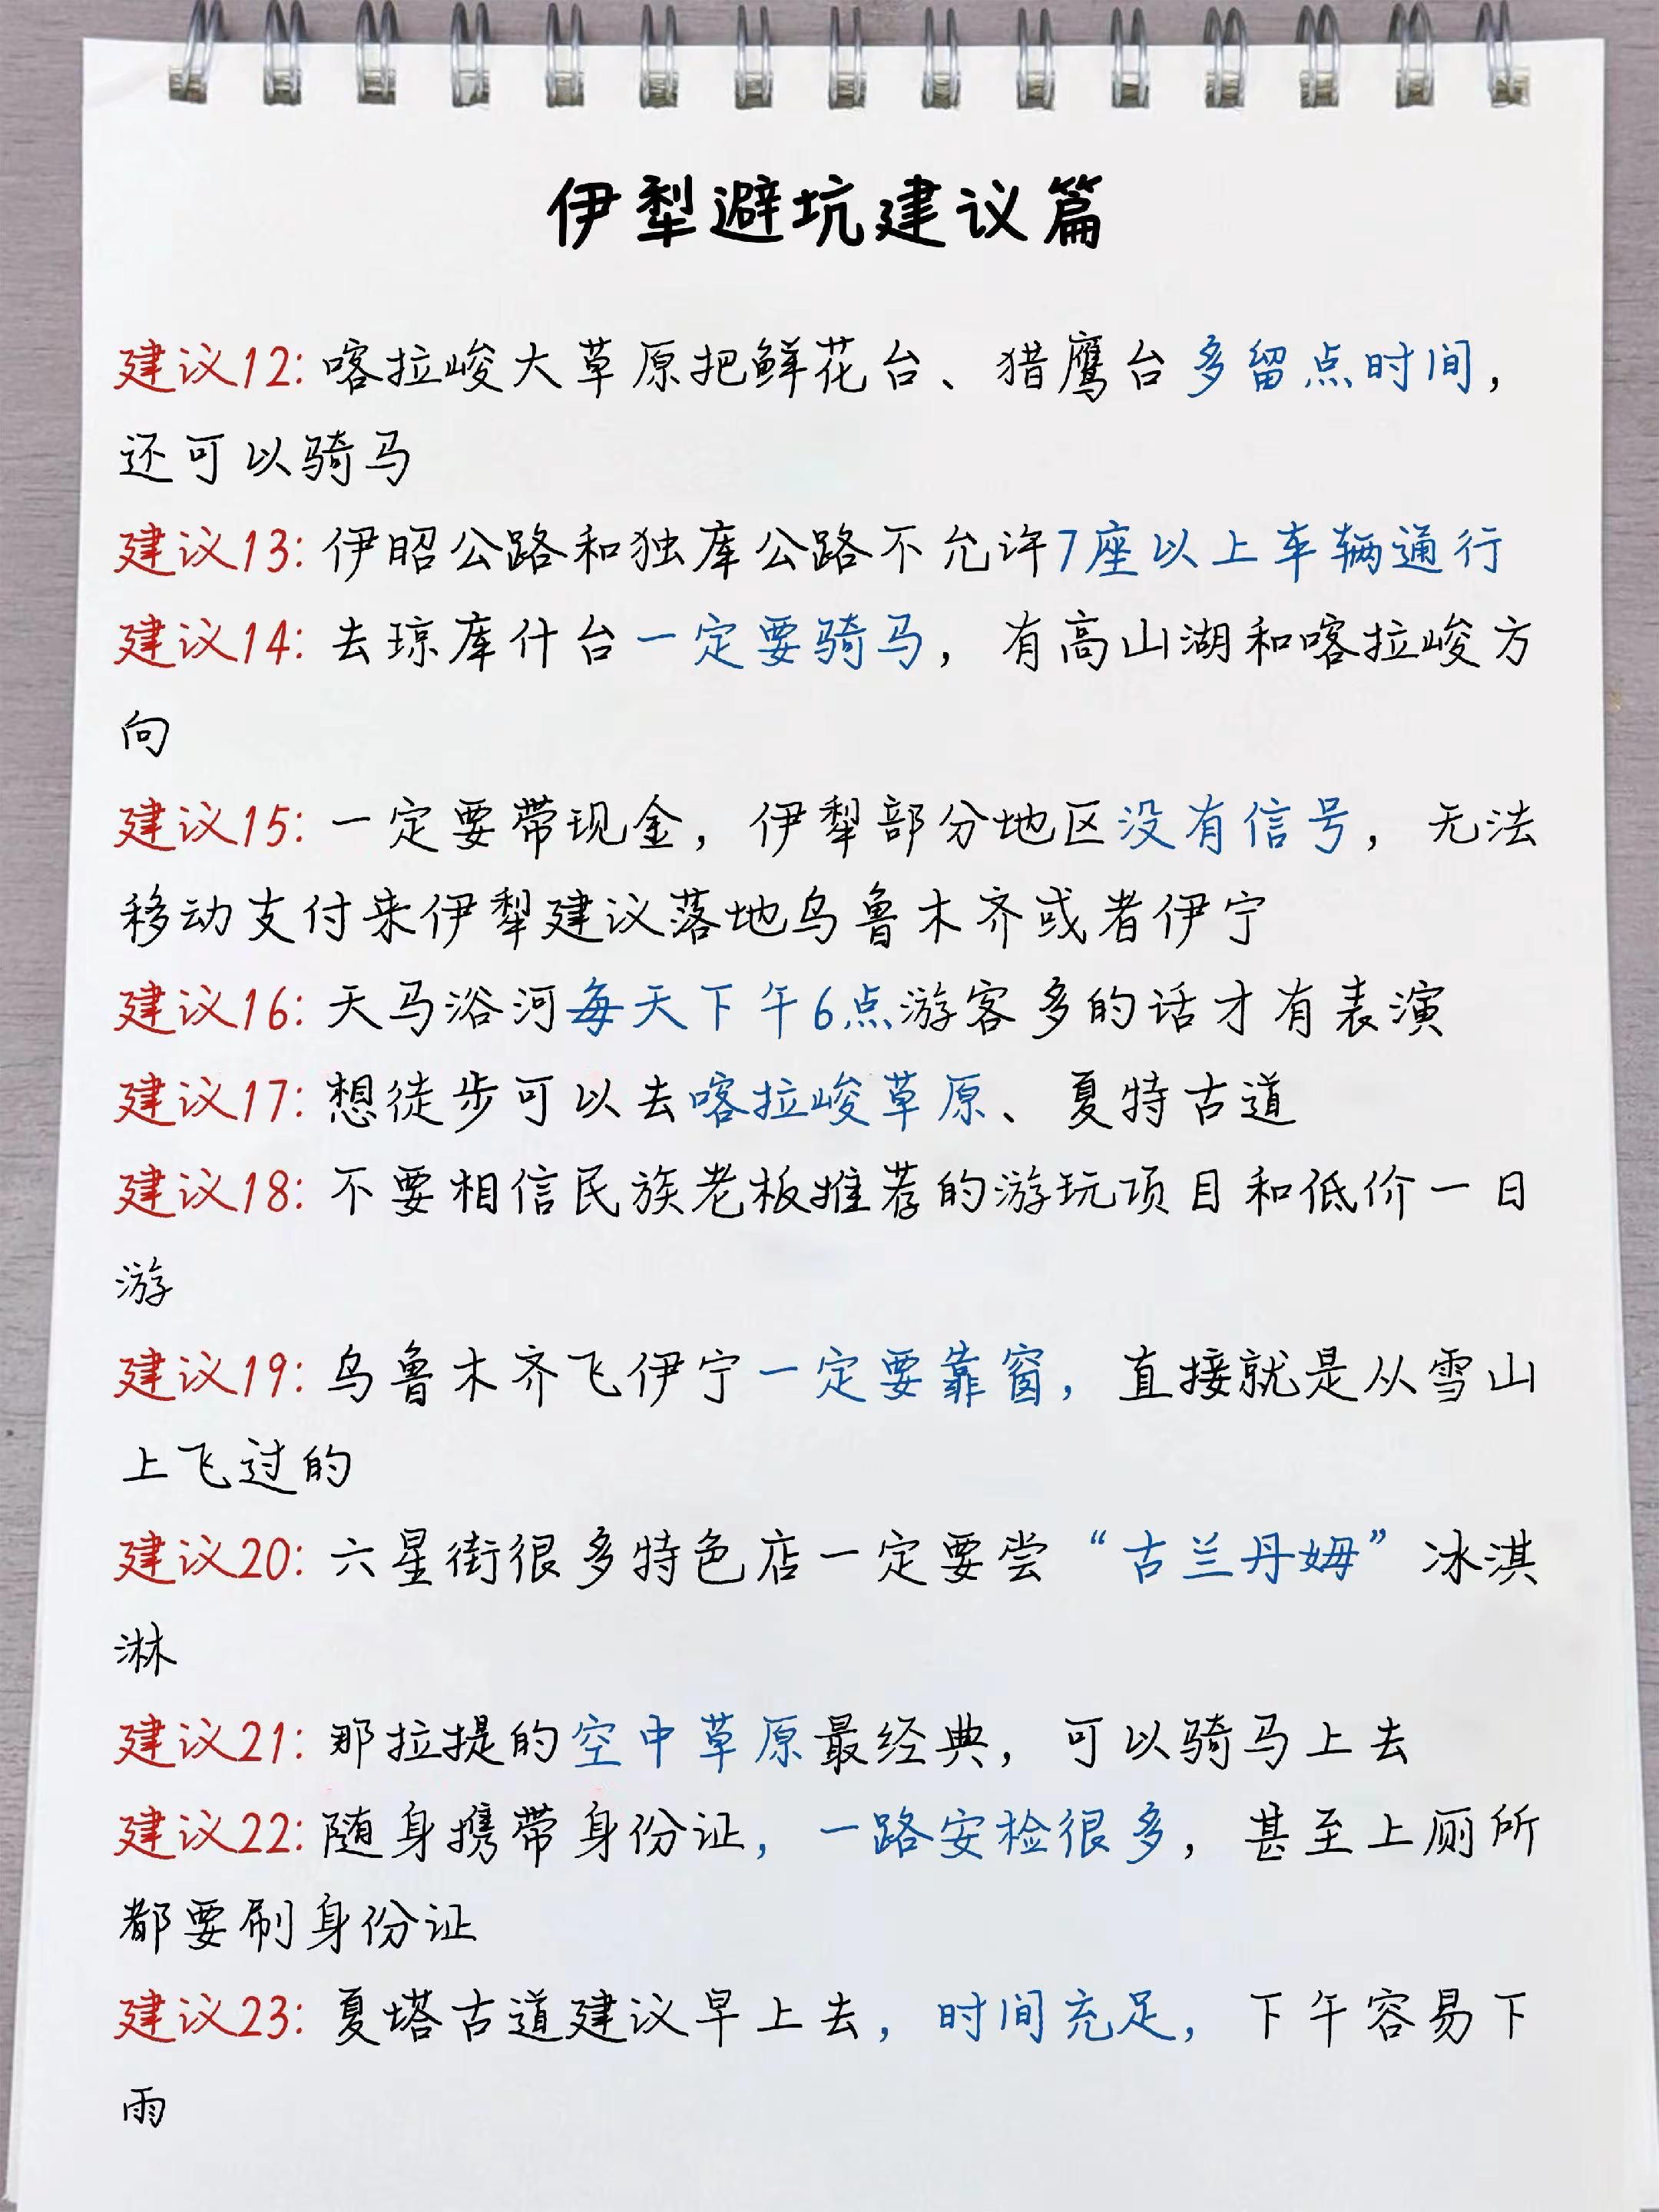 伊犁避坑建议篇
建议12: 喀拉峻大草原把鲜花台、猎鹰台多留点时间，
还可以骑马
建议13: 伊昭公路和独库公路不允许7座以上车辆通行
建议14: 去琼库什台一定要骑马，有高山湖和喀拉峻方
向
建议15: 一定要带现金，伊犁部分地区没有信号，无法
移动支付来伊犁建议落地乌鲁木齐或者伊宁
建议16: 天马浴河每天下午6点游客多的话才有表演
建议17: 想徒步可以去喀拉峻草原、夏特古道
建议18: 不要相信民族老板推荐的游玩项目和低价一日
游
建议19: 乌鲁木齐飞伊宁一定要靠窗，直接就是从雪山
上飞过的
建议20: 六星街很多特色店一定要尝“古兰丹姆”冰淇
淋
建议21: 那拉提的空中草原最经典，可以骑马上去
建议22: 随身携带身份证，一路安检很多，甚至上厕所
都要刷身份证
建议23: 夏塔古道建议早上去，时间充足，下午容易下
雨